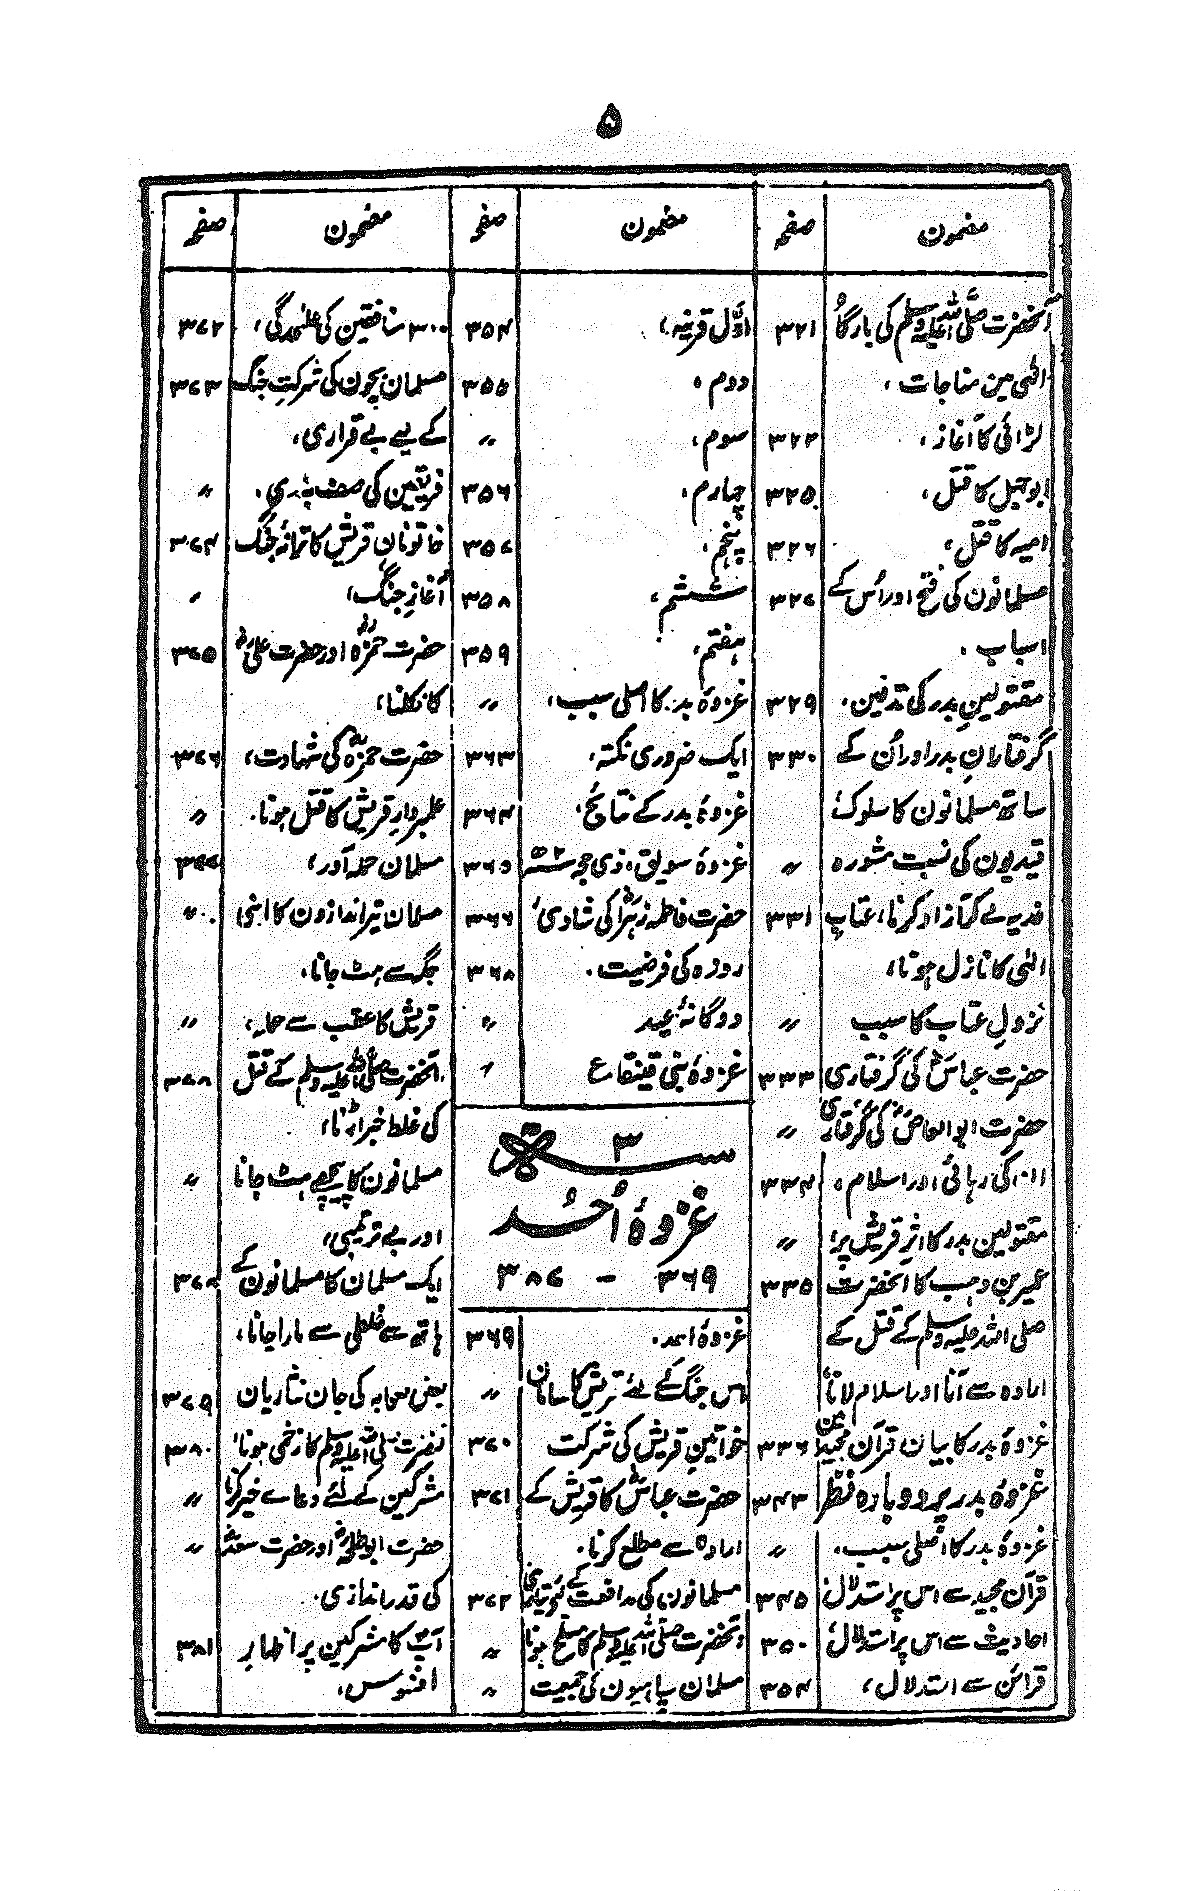 ۵
مضمون صفحہ
آنحضرت صلی اللہ علیہ وسلم کی بارگاہ ۳۲۱
الٰہی مین مناجات،
لڑائی کا آغاز، ۳۲۲
ابوجہل کا قتل، ۳۲۵
امیہ کا قتل، ۳۲۶
مسلمانون کی فتح اور اُس کے ۳۲۷
اسباب،
مقتولینِ بدر کی تدفین، ۳۲۹
گرفتارانِ بدر اور اُن کے ۳۳۰
ساتھ مسلمانون کا سلوک،
قیدیون کی نسبت مشورہ 〃
فدیہ لے کر آزاد کرنا، عتابِ ۳۳۱
الٰہی کا نازل ہونا،
نزولِ عتاب کا سبب 〃
حضرت عباسؓ کی گرفتاری ۳۳۳
حضرت ابوالعاصؓ کی گرفتاری 〃
ان کی رہائی اور اسلام، ۳۳۴
مقتولین بدر کا اثرِ قریش پر، 〃
عمیر بن وہب کا آنحضرت ۳۳۵
صلی اللہ علیہ وسلم کے قتل کے
ارادہ سے آنا اور اسلام لانا
غزوۂ بدر کا بیان قرآن مجید مین ۳۳۶
غزوۂ بدر پر دوبارہ نظر ۳۴۳
غزوۂ بدر کا اصلی سبب، 〃
قرآن مجید سے اس پر استدلال، ۳۴۵
احادیث سے اس پر استدلال، ۳۵۰
قرائن سے استدلال، ۳۵۴
مضمون صفحہ
اوّل قرینہ، ۳۵۴
دوم، ۳۵۵
سوم، 〃
چہارم، ۳۵۶
پنجم، ۳۵۷
ششم، ۳۵۸
ہفتم، ۳۵۹
غزوۂ بدر کا اصلی سبب، 〃
ایک ضروری نکتہ، ۳۶۳
غزوۂ بدر کے نتائج، ۳۶۴
غزوۂ سویق، ذی حجہ ۲ھ ۳۶۵
حضرت فاطمہ زہراؓ کی شادی، ۳۶۶
روزہ کی فرضیت، ۳۶۸
دوگانۂ عید 〃
غزوۂ بنی قینقاع 〃
سنہ ۳ھ
غزوۂ اُحُد
۳۶۹ - ۳۸۷
غزوۂ احد، ۳۶۹
اس جنگ کے لئے قریش کا سامان 〃
خواتینِ قریش کی شرکت ۳۷۰
حضرت عباسؓ کا قریش کے ۳۷۱
ارادہ سے مطلع کرنا،
مسلمانون کی مدافعت کے لئے تیاری ۳۷۲
آنحضرت صلی اللہ علیہ وسلم کا مسلح ہونا 〃
مسلمان سپاہیون کی جمعیت 〃
مضمون صفحہ
۳۰۰ منافقین کی علٰحدگی، ۳۷۲
مسلمان بچون کی شرکتِ جنگ ۳۷۳
کے لیے بے قراری،
فریقین کی صف بندی، 〃
خاتونانِ قریش کا ترانۂ جنگ ۳۷۴
آغازِ جنگ، 〃
حضرت حمزہؓ اور حضرت علیؓ ۳۷۵
کا نکلنا،
حضرت حمزہؓ کی شہادت، ۳۷۶
علمبردارِ قریش کا قتل ہونا، 〃
مسلمان حملہ آور، ۳۷۷
مسلمان تیر اندازون کا اپنی 〃
جگہ سے ہٹ جانا،
قریش کا عقب سے حملہ، 〃
آنحضرت صلی اللہ علیہ وسلم کے قتل ۳۷۸
کی غلط خبر اڑنا،
مسلمانون کا پیچھے ہٹ جانا 〃
اور بے ترتیبی،
ایک مسلمان کا مسلمانون کے ۳۷۸
ہاتھ سے غلطی سے مارا جانا،
بعض صحابہ کی جان نثاریان ۳۷۹
آنحضرت صلی اللہ علیہ وسلم کا زخمی ہونا، ۳۸۰
مشرکین کے لئے دعاے خیر کرنا 〃
حضرت ابوطلحہؓ اور حضرت سعدؓ 〃
کی قدر اندازی،
آپؐ کا مشرکین پر اظہارِ ۳۸۱
افسوس،